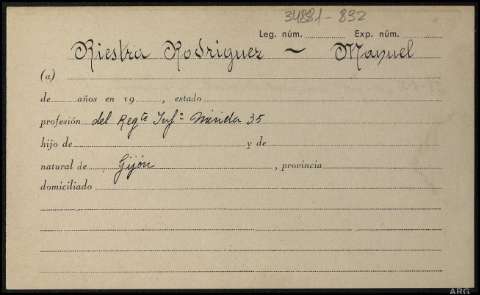 34881-832
Leg. núm. Exp. núm.
Riestra Rodriguez ~ Manuel
(a)
de años en 19 , estado
profesión del Regte Infª Mérida 35
hijo de y de
natural de Gijón , provincia
domiciliado
ARG